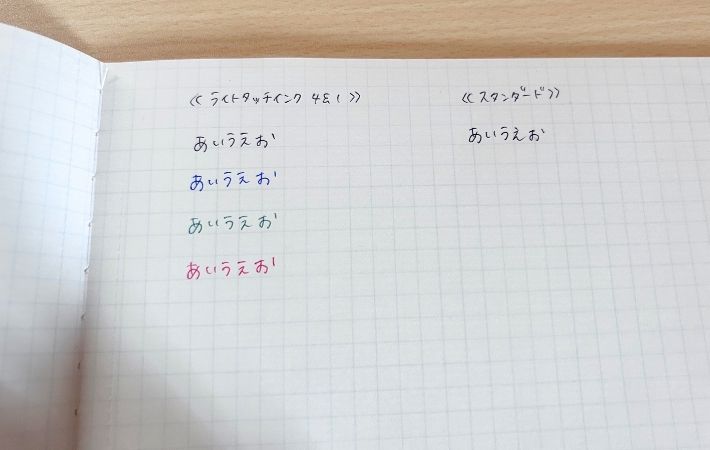 《ライトタッチインク 4&1》
あいうえお
あいうえお
あいうえお
あいうえお
《スタンダード》
あいうえお